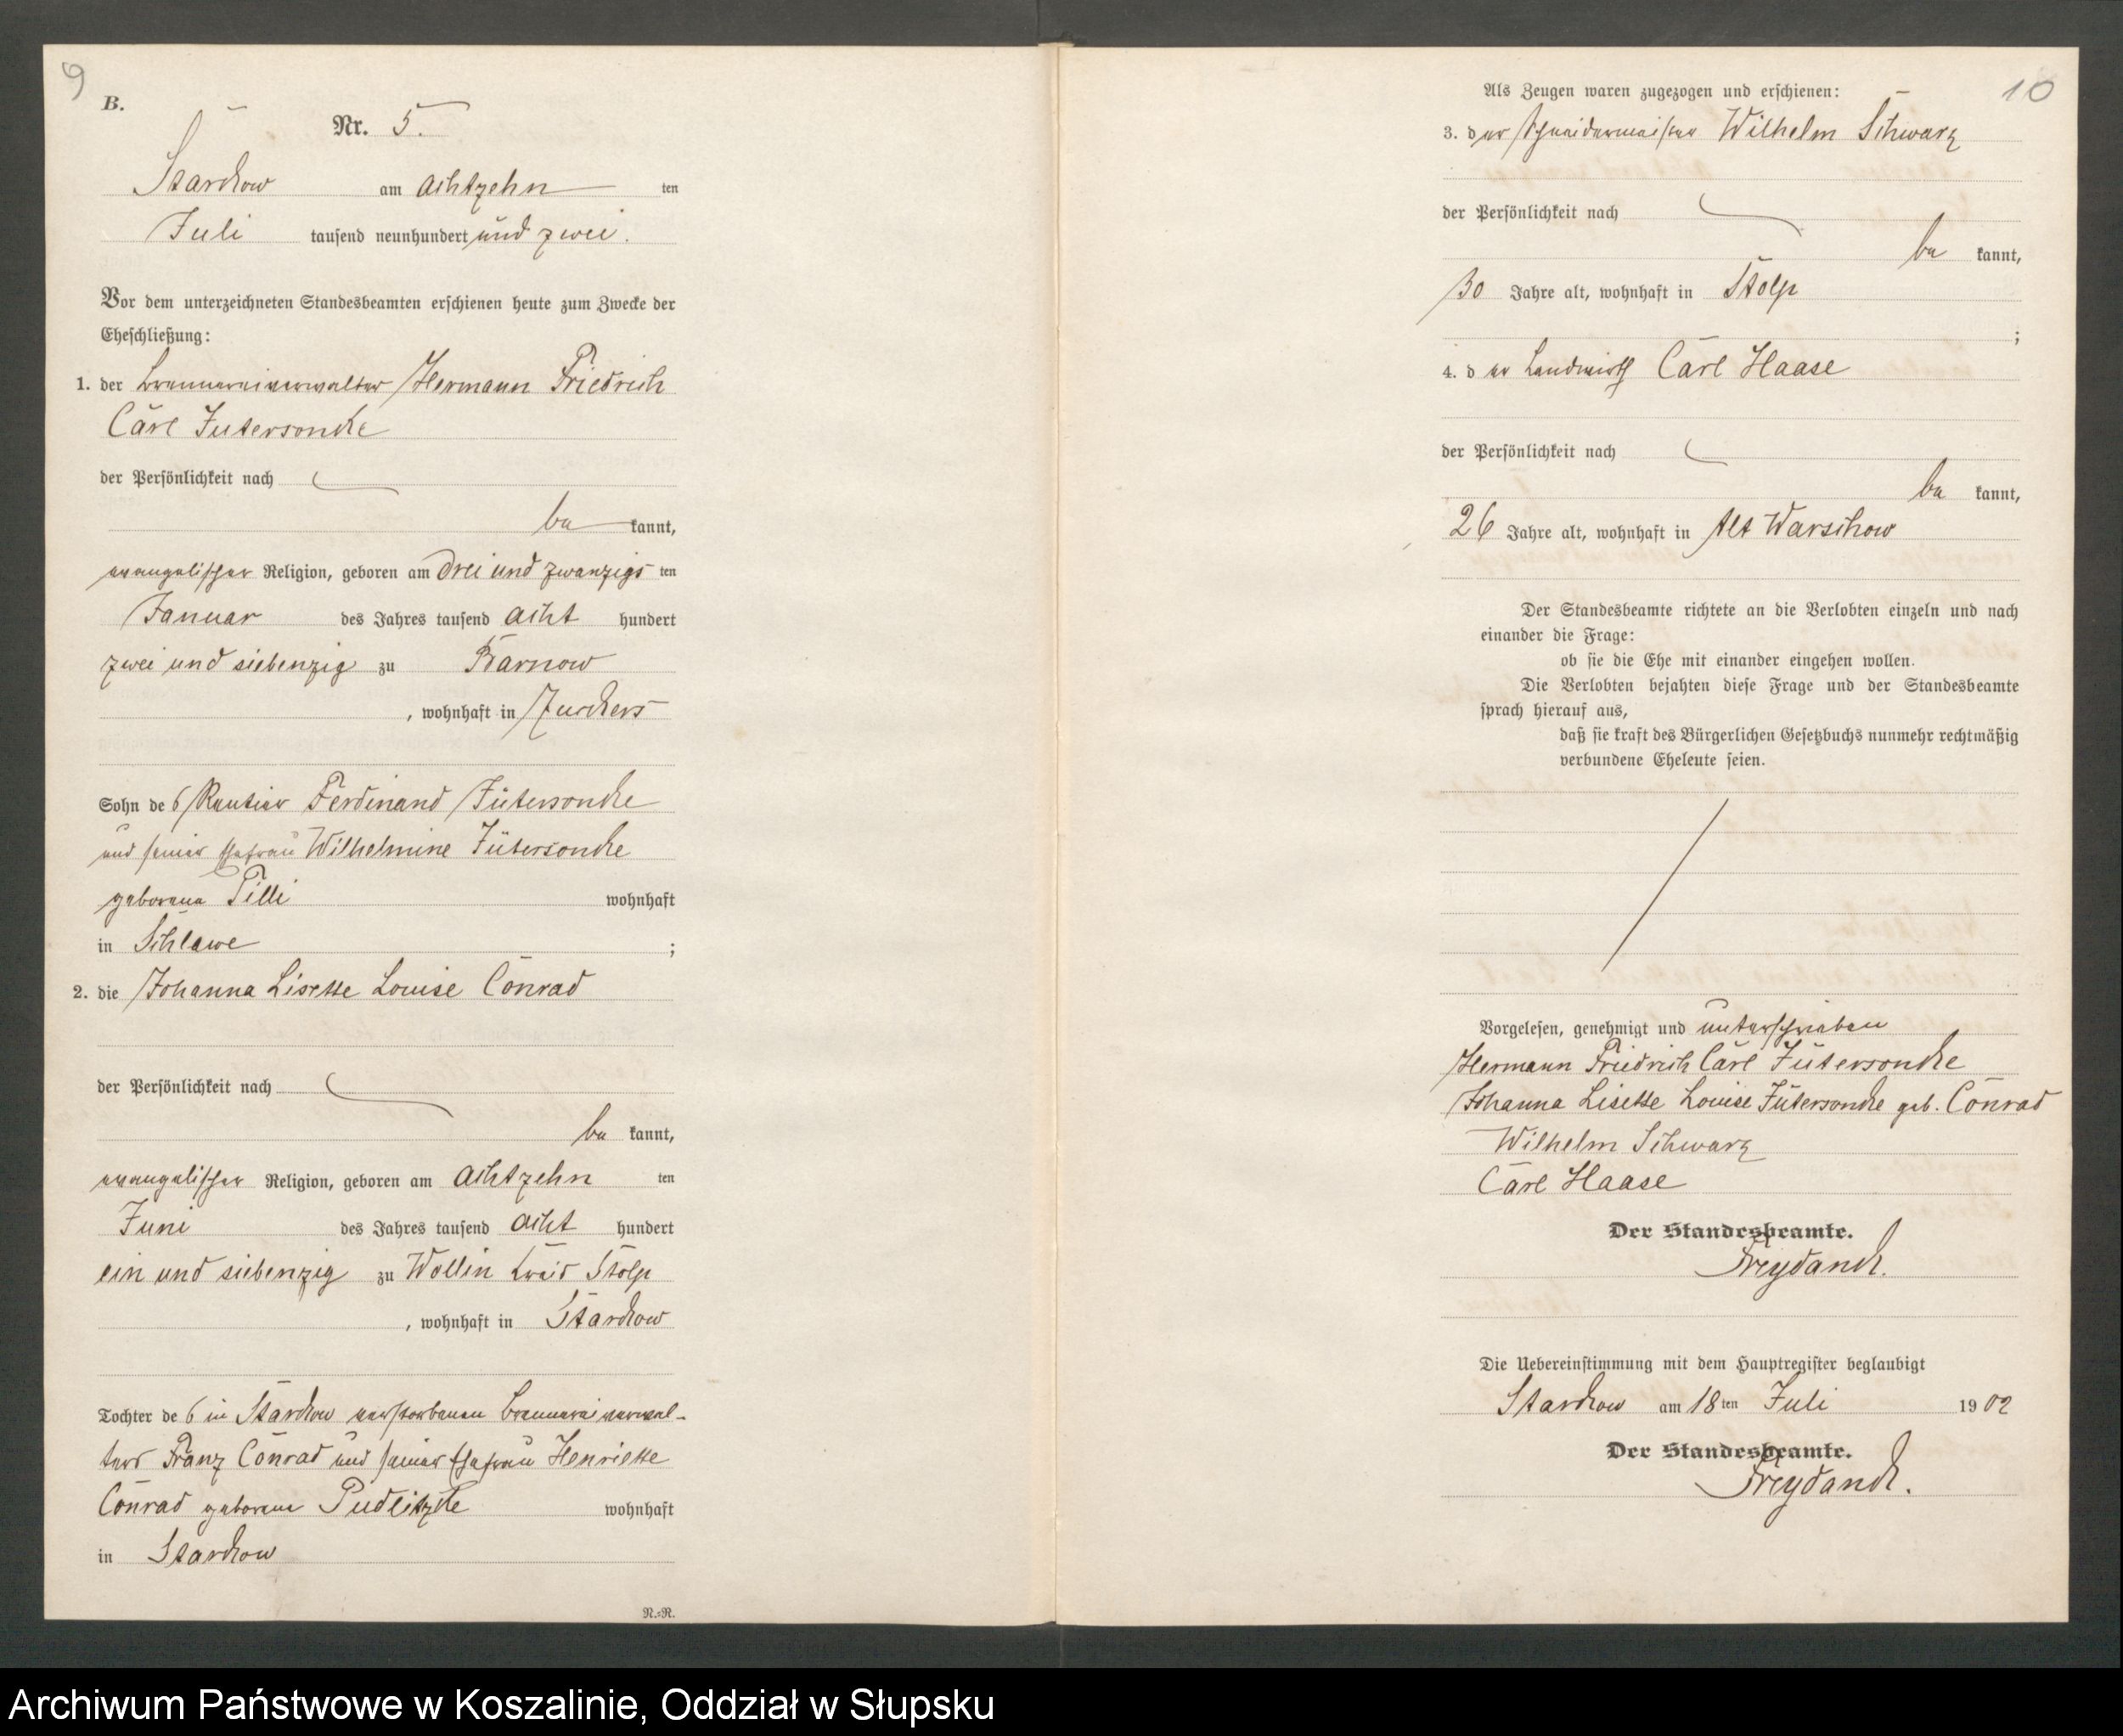 9
B.
Nr. 5.
Starckow am achtzehn ten
Juli tausend neunhundert und zwei.
Vor dem unterzeichneten Standesbeamten erschienen heute zum Zwecke der
Eheschließung:
1. der Brennereiverwalter Hermann Friedrich
Carl Jütersoncke
der Persönlichkeit nach
be kannt,
evangelischer Religion, geboren am drei und zwanzigs ten
Januar des Jahres tausend acht hundert
zwei und siebenzig zu Barnow
, wohnhaft in Zuckers
Sohn des Rentier Ferdinand Jütersoncke
und seiner Ehefrau Wilhelmine Jütersoncke
geborene Tilli wohnhaft
in Schlawe ;
2. die Johanna Lisette Louise Conrad
der Persönlichkeit nach
be kannt,
evangelischer Religion, geboren am achtzehn ten
Juni des Jahres tausend acht hundert
ein und siebenzig zu Wollin Kreis Stolp
, wohnhaft in Starckow
Tochter des in Starckow verstorbenen Brennereiverwal-
ters Franz Conrad und seiner Ehefrau Henriette
Conrad geborene Pudlitzke wohnhaft
in Starckow
N.=R.
10
Als Zeugen waren zugezogen und erschienen:
3. der Schneidermeister Wilhelm Schwarz
der Persönlichkeit nach
be kannt,
30 Jahre alt, wohnhaft in Stolp
;
4. der Landwirth Carl Haase
der Persönlichkeit nach
be kannt,
26 Jahre alt, wohnhaft in Alt Warschow
Der Standesbeamte richtete an die Verlobten einzeln und nach
einander die Frage:
ob sie die Ehe mit einander eingehen wollen.
Die Verlobten bejahten diese Frage und der Standesbeamte
sprach hierauf aus,
daß sie kraft des Bürgerlichen Gesetzbuchs nunmehr rechtmäßig
verbundene Eheleute seien.
Vorgelesen, genehmigt und unterschrieben
Hermann Friedrich Carl Jütersoncke
Johanna Lisette Louise Jütersoncke geb. Conrad
Wilhelm Schwarz
Carl Haase
Der Standesbeamte.
Freydanck.
Die Uebereinstimmung mit dem Hauptregister beglaubigt
Starckow am 18 ten Juli 1902
Der Standesbeamte.
Freydanck.
Archiwum Państwowe w Koszalinie, Oddział w Słupsku